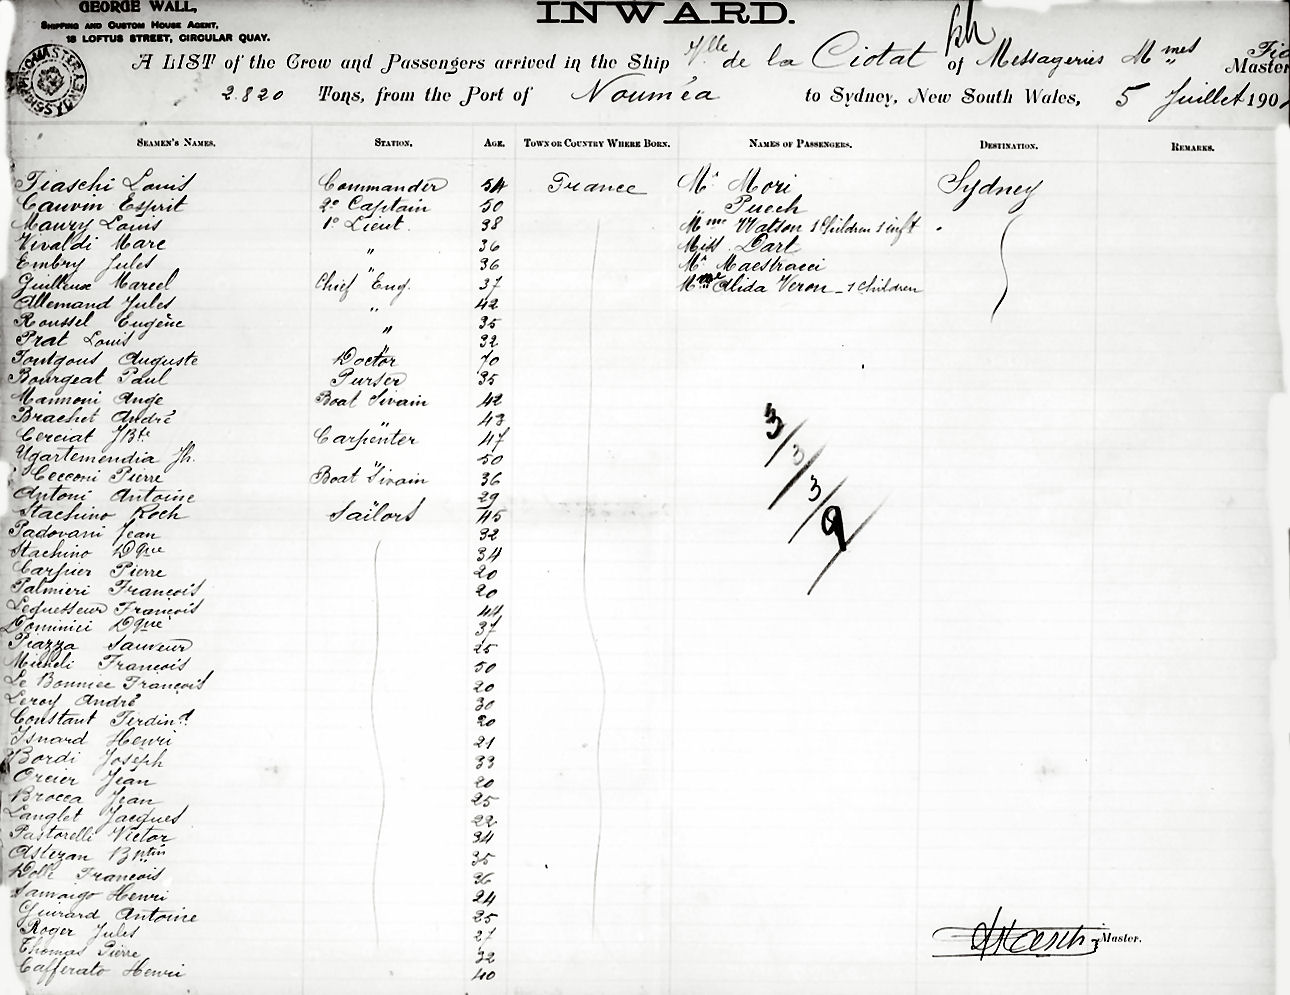 GEORGE WALL,
SHIPPING AND CUSTOM HOUSE AGENT,
18 LOFTUS STREET, CIRCULAR QUAY.
INWARD.
A LIST of the Crew and Passengers arrived in the Ship Ville de la Ciotat of Messageries Mmes Master
2.820 Tons, from the Port of Nouméa to Sydney, New South Wales, 5 Juillet 190
SEAMEN'S NAMES. STATION. AGE. TOWN OR COUNTRY WHERE BORN. NAMES OF PASSENGERS. DESTINATION. REMARKS.
Fiaschi Louis Commander 54 France Mr Mori Sydney
Cauvin Esprit 2e Captain 50 Puech
Maury Louis 1e Lieut. 38 Mme Watson 1 Children 1 inft
Vivaldi Marc " 36 Miss Dart
Embry Jules " 36 Mr Maestracci
Guilleux Marcel Chief Eng. 37 Mme Alida Veron - 1 Children
Allemand Jules " 42
Roussel Eugène " 35
Prat Louis " 32
Fontgous Auguste Doctor 70
Bourgeat Paul Purser 35
Maimoni Ange Boat Swain 42
Brachet André " 43
Cerciat JBte Carpenter 47
Ugartemendia Jh. " 50
Cecconi Pierre Boat Swain 36
Antoni Antoine " 29
Stachino Roch Sailors 45
Padovani Jean 32
Stachino Dque 34
Carpier Pierre 20
Palmieri François 20
Lequesseur François 44
Dominici Dque 37
Piazza Sauveur 25
Micheli François 50
Le Bonniec François 20
Leroy André 30
Constant Ferdind 20
Isnard Henri 21
Bordi Joseph 33
Orcier Jean 20
Brocca Jean 25
Langlet Jacques 22
Pastorelli Victor 34
Astezan Bntin 35
Dolle François 36
Samaigo Henri 24
Guirard Antoine 25
Roger Jules 27
Thomas Pierre 32
Cafferato Henri 40
3/3/3/9
Master.